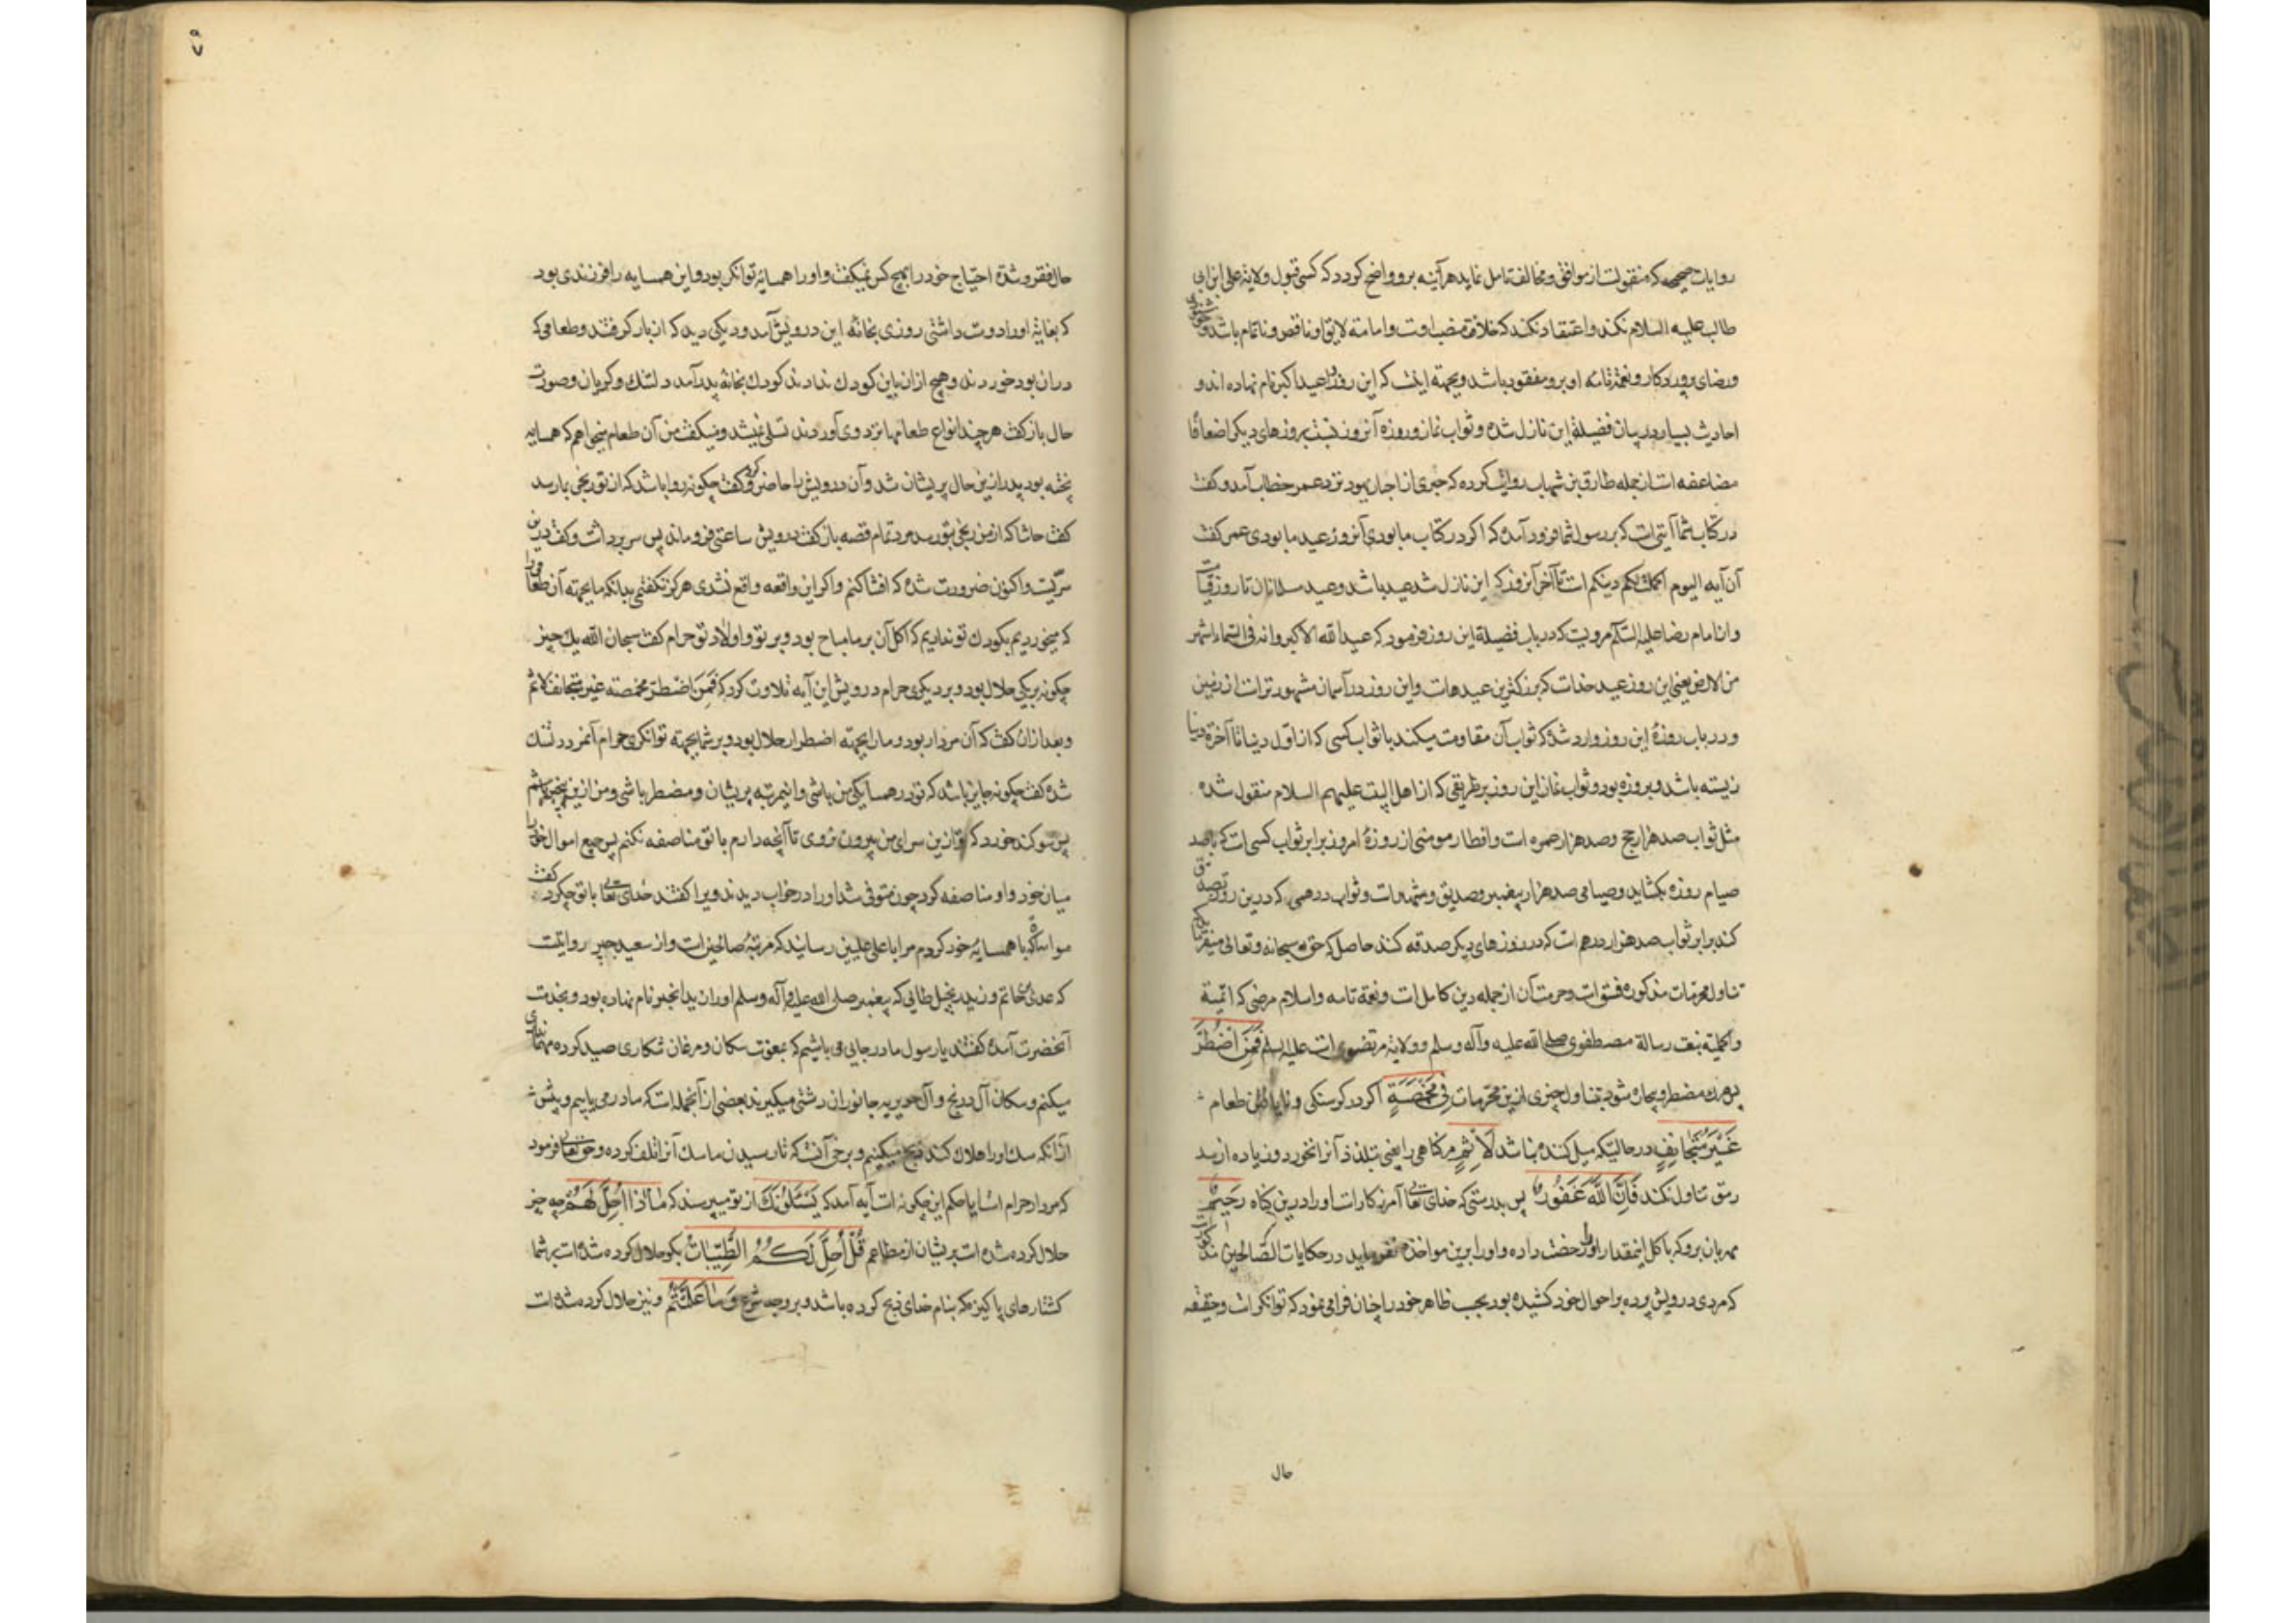 روایات صحیحه که منقولست از موافق و مخالف تامل نماید هرآینه برو واضح کردد که کسی قبول ولایة علی ابن ابی
طالب علیه السلام نکند و اعتقاد نکند که خلافة منصب اوست و امامة لایق او ناقص و ناتمام باشد و
و رضای پروردکار و نعمة تامه او برو مفقود باشد و بجهته اینست که این روز را عید اکبر نام نهاده اند و
احادیث بسیار در بیان فضیلة این نازل شده و ثواب نماز و روزه آنروز نسبت بروزهای دیکر اضعافا
مضاعفه است از جمله طارق بن شهاب روایت کرده که حبری از احبار یهود نزد عمر خطاب آمد و کفت
در کتاب شما آیتی است که بر رسول شما فرود آمده که اکر در کتاب ما بودی آنروز عید ما بودی عمر کفت
آن آیه الیوم اکملت لکم دینکم است تا آخر آنروز که این نازل شد عید باشد و عید مسلمانان تا روز قیامت
و از امام رضا علیه السلام مرویست که در باب فضیلة این روز فرمود که عید الله الاکبر و انه فی السماء اشهر
من الارض یعنی این روز عید خداست که بزرکترین عیدهاست و این روز در آسمان مشهورتر است از زمین
و در باب روزهٔ این روز وارد شده که ثواب آن مقاومت میکند با ثواب کسی که از اول دنیا تا آخرة دنیا
زیسته باشد و بروزه بود و ثواب نماز این روز بر طریقی که از اهل البیت علیهم السلام منقول شده
مثل ثواب صد هزار حج و صد هزار عمره است و افطار مومنی از روزهٔ امروز برابر ثواب کسی است که باصد
صیام روزه بکشاید و صیامی صد هزار پیغمبر و صدیق و شهداست و ثواب درهمی که درین روز تصدق
کند برابر ثواب صد هزار درهم است که در روزهای دیکر صدقه کند حاصل که حق سبحانه و تعالی میفرماید که
تناول محرمات مذکوره فسق است و حرمت آن از جمله دین کامل است و نعمة تامه و اسلام مرضی که اتمیة
و اکملیة بنعت رسالة مصطفوی صلی الله علیه و آله و سلم و ولایة مرتضوی است علیه السلم فَمَنِ اضْطُرَّ
پس هرکه مضطر و بیچاره شود بتناول چیزی ازین محرمات فِی مَخْمَصَةٍ اکر در کرسنکی و نایافتن طعام
غَیْرَ مُتَجَانِفٍ در حالتیکه میل کننده نباشد لِاِثْمٍ مر کناهی را یعنی بتلذذ آنرا نخورد و زیاده از سد
رمق تناول نکند فَاِنَّ اللّٰهَ غَفُورٌ پس بدرستی که خدای تعالی آمرزکار است او را درین کناه رَحِیمٌ
مهربان برو که باکل اینمقدار او را رخصت داده و او را برین مواخذه نفرماید در حکایات الصالحین مذکورست
که مردی درویش پرده بر احوال خود کشیده بود بحسب ظاهر خود را چنان فرا می نمود که توانکر است و حقیقه
حال
۷۹
حال فقر و شدة احتیاج خود را بهیچ کس نمیکفت و او را همسایهٔ توانکر بود و این همسایه را فرزندی بود
که بغایة او را دوست داشتی روزی بخانهٔ این درویش آمد و دیکی دید که از بار کرفتند و طعامی که
دران بود خوردند و هیچ ازان باین کودک ندادند کودک بخانهٔ پدر آمد دلتنک و کریان و صورت
حال باز کفت هر چند انواع طعامها نزد وی آوردند تسلی نمیشد و میکفت من آن طعام میخواهم که همسایه
پخته بود پدر ازین حال پریشان شد و آن درویش را حاضر کرد و کفت چکونه روا باشد که از تو رنجی بما رسد
کفت حاشا که از من رنجی بتو رسد مرد تمام قصه باز کفت درویش ساعتی فرو ماند پس سر برداشت و کفت درین
سرّیست و اکنون ضرورت شده که افشا کنم و اکر این واقعه واقع نشدی هرکز نکفتمی بدانکه ما بجهته آن طعام را
که میخوردیم بکودک تو ندادیم که اکل آن بر ما مباح بود و بر تو و اولاد تو حرام کفت سبحان الله یک چیز
چکونه بر یکی حلال بود و بر دیکری حرام درویش این آیه تلاوت کرد که فَمَنِ اضطرّ مخمصته غیر متجانف لاثم
و بعد ازان کفت که آن مردار بود و ما را بجهته اضطرار حلال بود و بر شما بجهته توانکری حرام آنمرد دلتنک
شده کفت چکونه جایز باشد که تو در همسایکی من باشی و اینمرتبه پریشان و مضطر باشی و من ازین بیخبر باشم
پس سوکند خورد که تو ازین سرای من بیرون نروی تا آنچه دارم با تو مناصفه نکنم پس جمیع اموال خود را
میان خود و او مناصفه کرد چون متوفی شد او را در خواب دیدند و برا کفتند خدای تعالی با تو چکرد کفت
مواساة که با همسایهٔ خود کردم مرا باعلی علیین رسانید که مرتبهٔ صالحین است و از سعید جبیر روایتست
که عدی حاتم و زید بخیل طائی که پیغمبر صلی الله علیه و آله و سلم او را زید الخیر نام نهاده بود و بخدمت
آنحضرت آمده کفتند یا رسول ما در جایی می باشیم که بمعونت سکان و مرغان شکاری صید کرده مهمانداری
میکنیم و سکان آل درنج و آل حویریه جانوران دشتی میکیرند بعضی از آنجمله است که ما در می یابیم و پیش
ازآنکه سک او را هلاک کند ذبح میکنیم و برخی آنست که تا رسیدن ما سک آنرا تلف کرده و حق تعالی فرمود
که مردار حرام است آیا حکم این چکونه است آیه آمد که یَسْئَلُونَکَ از تو میپرسند که مَاذَا اُحِلَّ لَهُمْ چه چیز
حلال کرده شده است بریشان از مطاعم قُلْ اُحِلَّ لَکُمُ الطَّیِّبَاتُ بکو حلال کرده شده است بر شما
کشتارهای پاکیزه که بنام خدای ذبح کرده باشد و بر وجه شرع وَمَا عَلَّمْتُمْ و نیز حلال کرده شده است